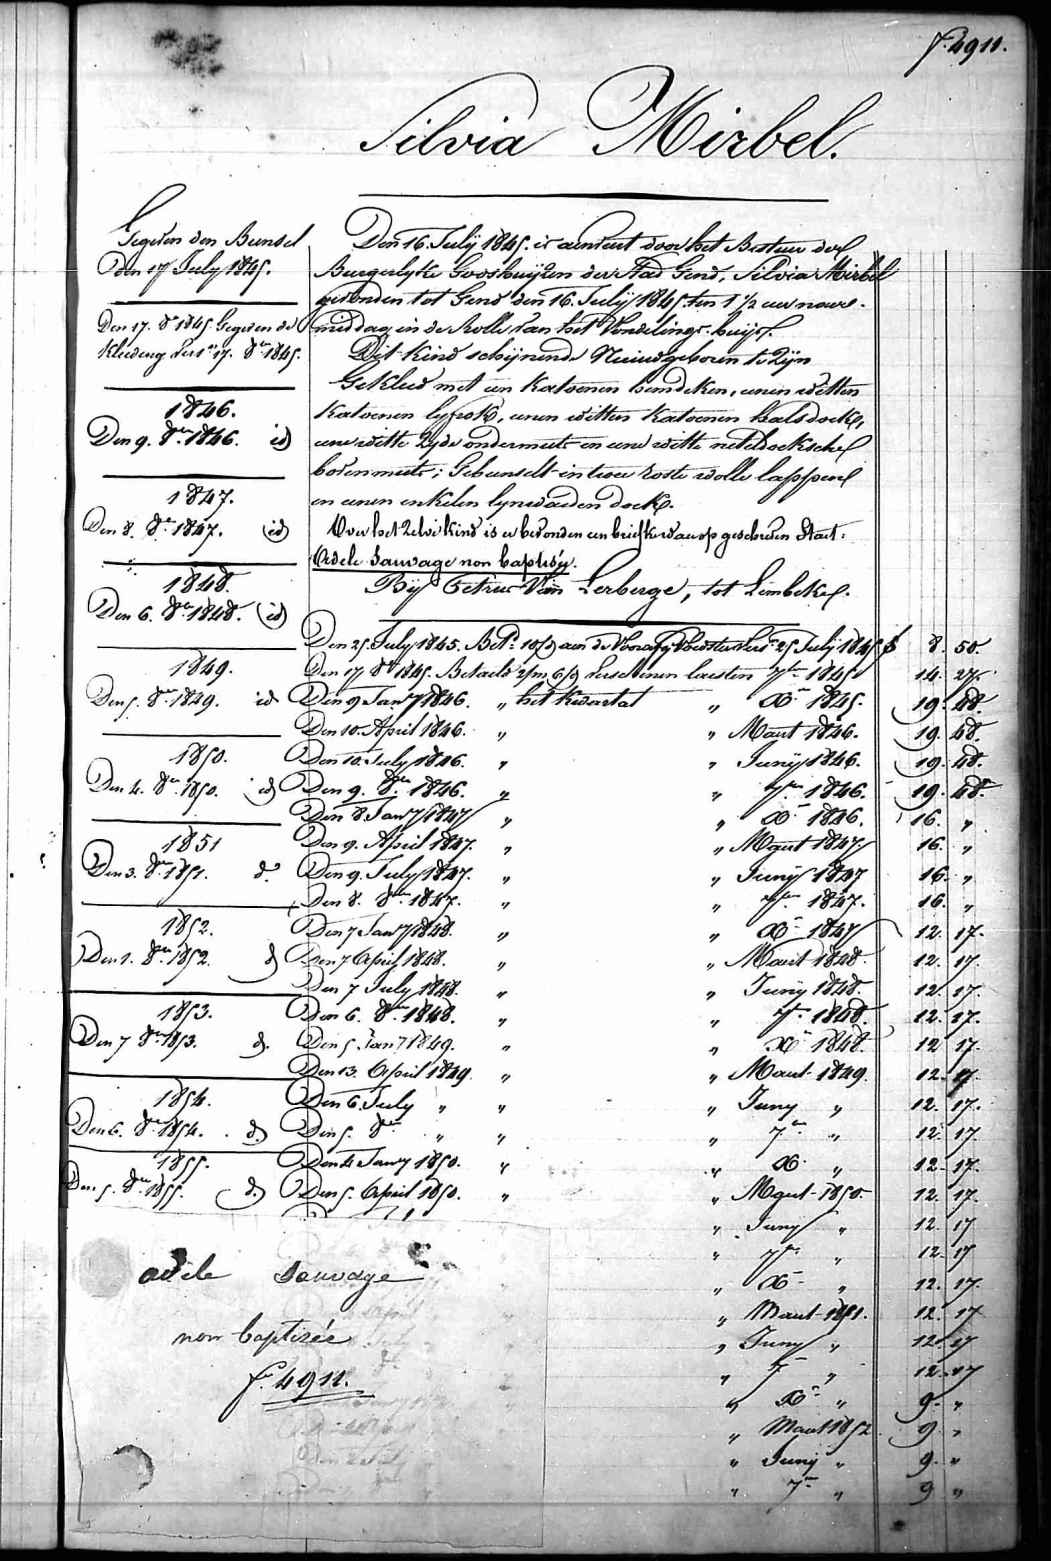 f. 4911.
Silvia Mirbel.
Gegeven den Bunsel
Den 17 July 1845.
Den 17. 8.e 1845. Gegeven de
Kleeding 17. 8.e 1845.
1846.
Den 9. 8.er 1846. id
1847.
Den 8. 8.e 1847. (id)
1848.
Den 6. 8.er 1848. (id)
1849.
Den 5. 8.er 1849. id
1850.
Den 4. 8.er 1850. id
1851
Den 3. 8.er 1851. d.o
1852.
Den 1. 8.er 1852. d
1853.
Den 7 8.er 1853. d.
1854.
Den 6. 8.er 1854. d.)
1855.
Den 5. 8.er 1855. (d.)
Den 16. Julÿ 1845. is aenveut door het Bestuer der
Burgerlyke Godshuyzen der Stad Gend, Silvia Mirbel
gevonden tot Gend den 16. Julÿ 1845. ten 1 1/2 uer naer-
middag in de Rolle van het Vondelings-huys.
Dit Kind schijnende Nieuwgeboren te zÿn
Gekleed met een Katoenen hemdeken, eenen witten
Katoenen lyfrok, eenen witten Katoenen halsdoek,
eene witte Zyde ondermuts en eene witte neteldoeksche
bovenmuts; Gebunselt in twee roste wolle lappen
en eenen enkelen lynwaeden doek.
Over het zelve kind is er bevonden een briefken daer op geschreven Staet:
Adele Sauvage non baptisée.
Bÿ Petrus Van Lerberge, tot Lembeke.
Den 25. July 1845. Bet. 10/9 aen de Voedster 25 July 1845 f 8. 50
Den 17 8.e 1845. Betaeld 2/m 6/9 verschenen laesten 7.ber 1845 14. 27.
Den 9 Jan.y 1846. „ het kwartal „ X.er 1845. 19. 48.
Den 10. April 1846. „ „ Maert 1846. 19. 48.
Den 10. July 1846. „ „ Junÿ 1846. 19. 48.
Den 9. 8.er 1846. „ „ 7.ber 1846. 19. 48.
Den 8 Jan.y 1847 „ „ X.er 1846. 16. „
Den 9. April 1847. „ „ Maert 1847. 16. „
Den 9. July 1847. „ „ Junÿ 1847 16. „
Den 8. 8.er 1847. „ „ 7.ber 1847. 16. „
Den 7 Jan.y 1848. „ „ X.er 1847 12. 17.
Den 7 April 1848. „ „ Maert 1848. 12. 17.
Den 7 July 1848. „ „ Junÿ 1848. 12. 17.
Den 6. 8.er 1848. „ „ 7.er 1848. 12. 17.
Den 5. Jan.y 1849. „ „ X.er 1848. 12 17.
Den 13. April 1849. „ „ Maert 1849. 12. 17.
Den 6. July „ „ „ Juny „ 12. 17.
Den 5. 8.er „ „ „ 7.er „ 12. 17
Den 4 Jan.y 1850. „ „ X. „ 12. 17.
Den 5. April 1850. „ „ Maert 1850. 12. 17.
„ Juny „ 12. 17
„ 7.er „ 12. 17
„ X.er „ 12. 17.
„ Maert 1851. 12. 17
„ Juny „ 12. 17
„ 7.er „ 12. 17
„ X.er „ 9. „
„ Maert 1852 9. „
„ Junÿ „ 9. „
„ 7.er „ 9 „
adele Sauvage
non baptisée
f. 4911.